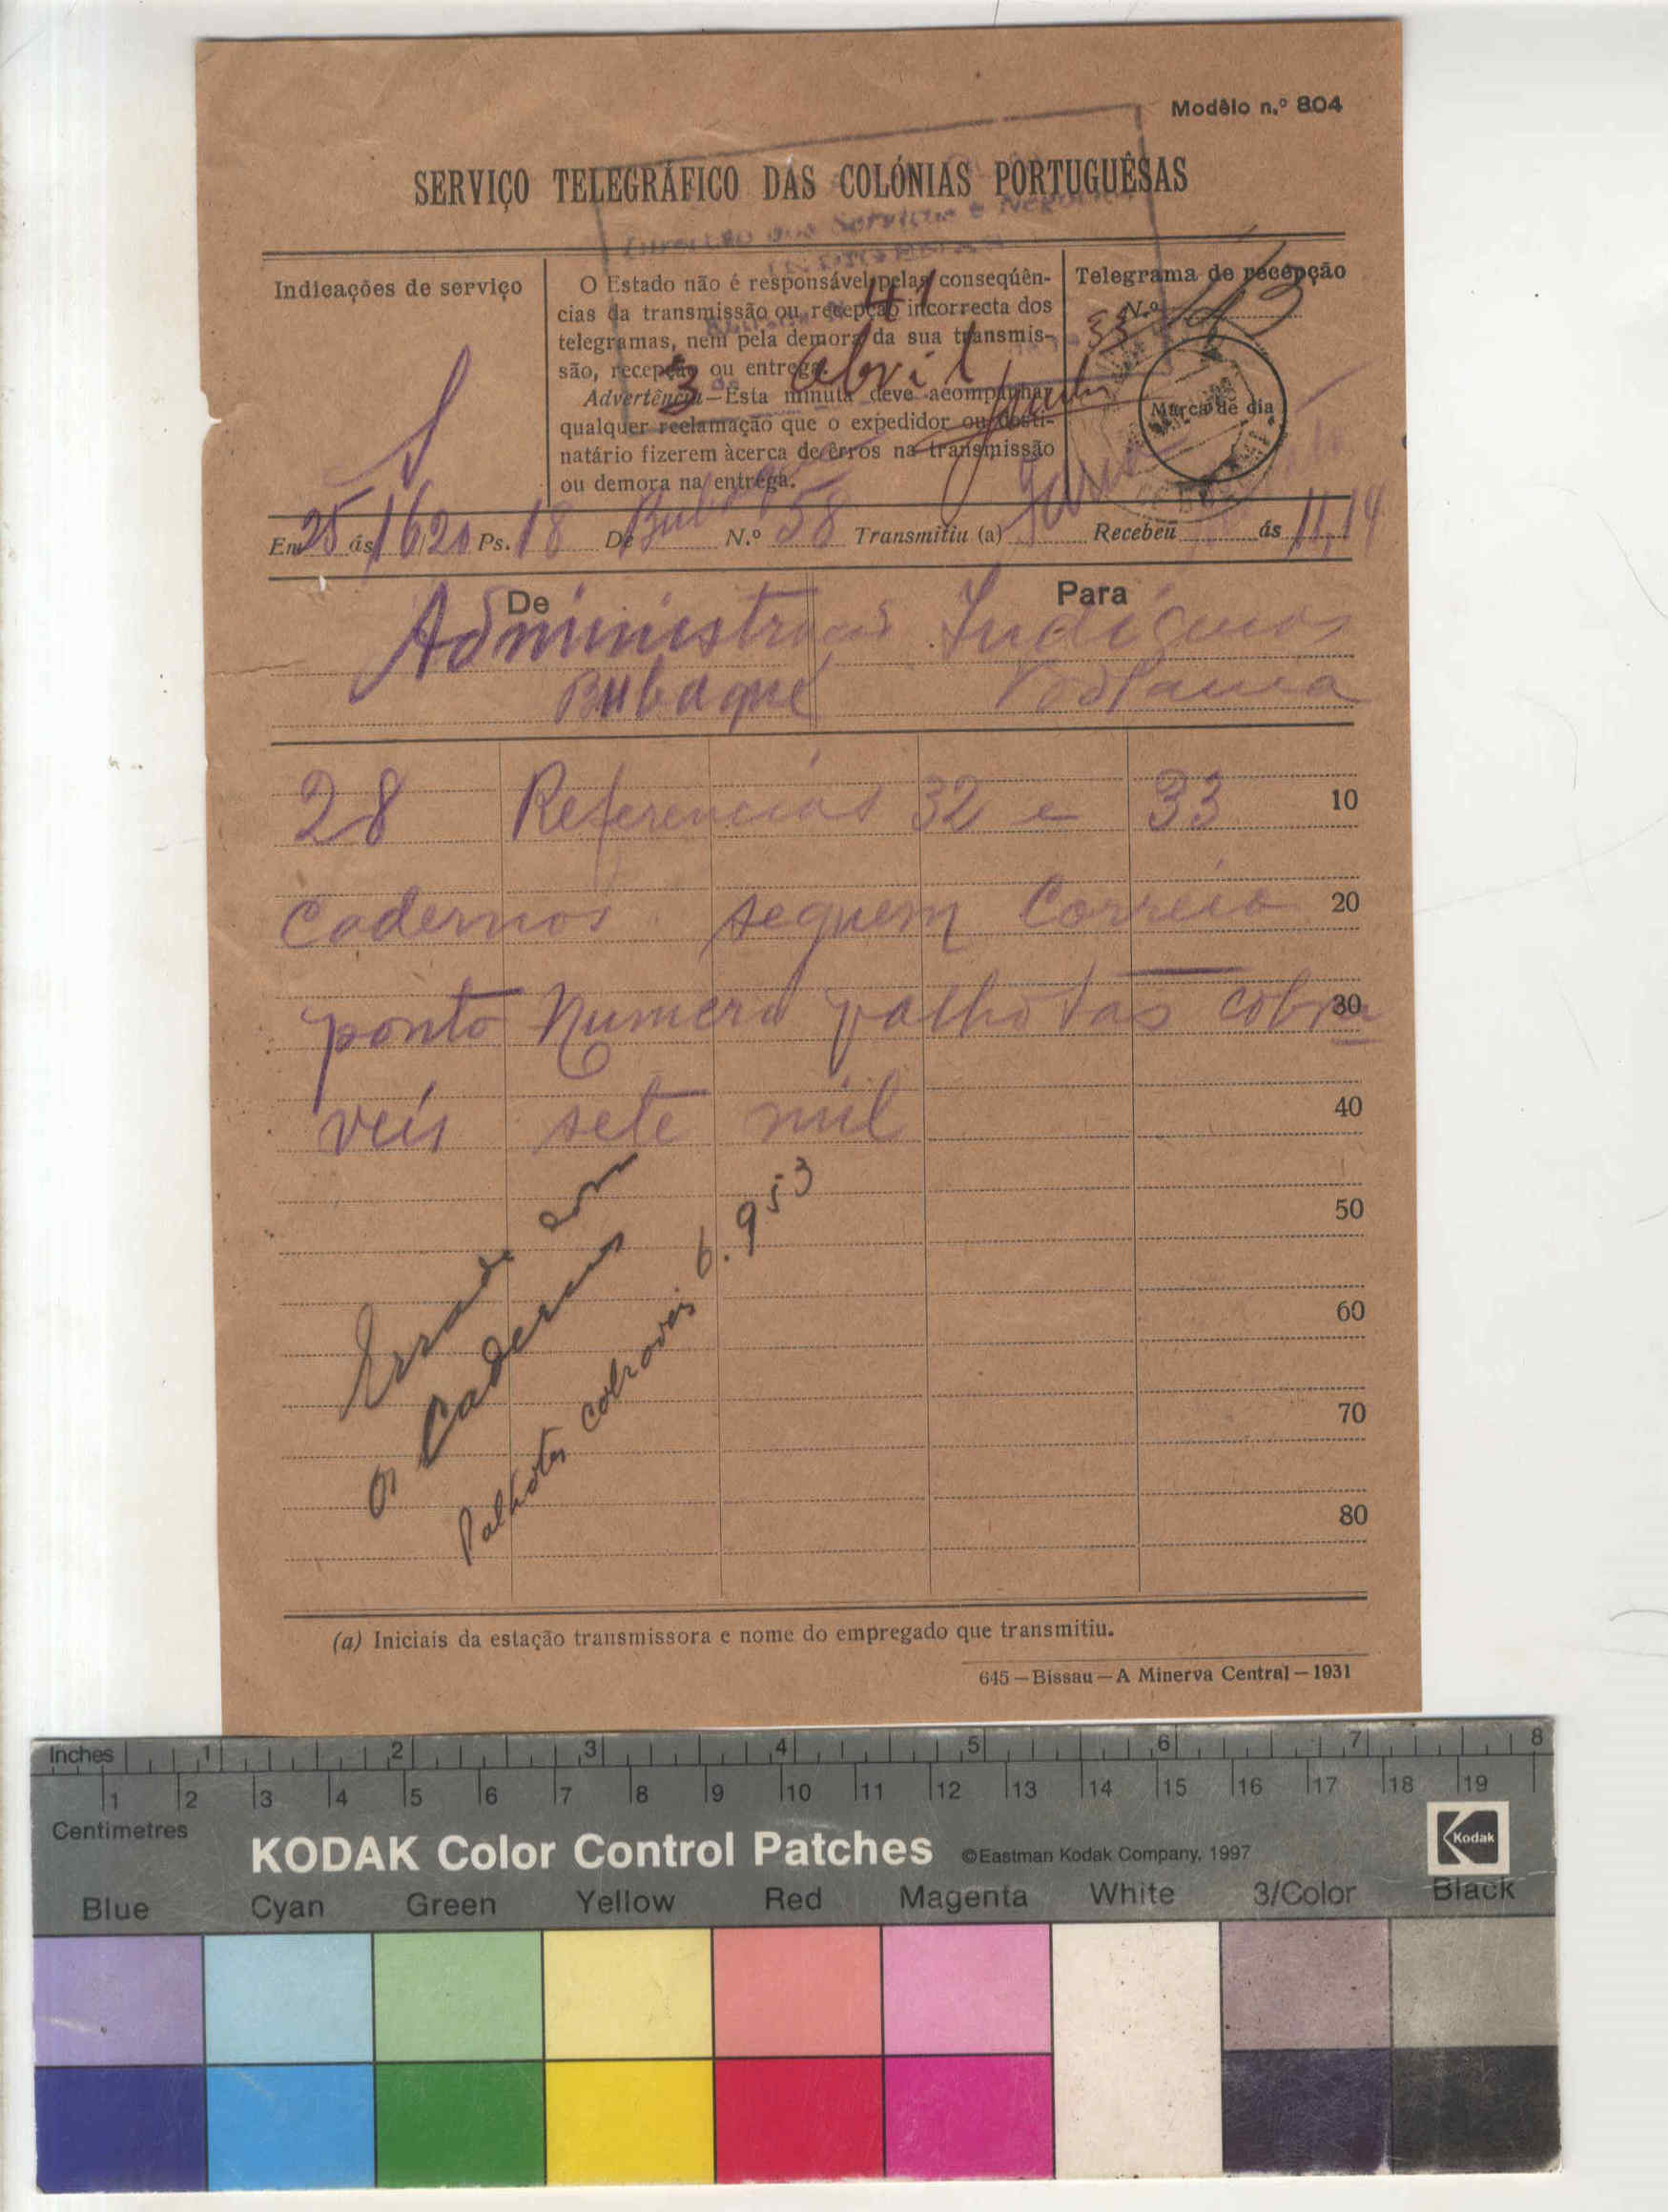 Modêlo n.º 804
SERVIÇO TELEGRÁFICO DAS COLÓNIAS PORTUGUÊSAS
Indicações de serviço
O Estado não é responsável pelas conseqüên-
cias da transmissão ou recepção incorrecta dos
telegramas, nem pela demora da sua transmis-
são, recepção ou entrega.
Advertência—Esta minuta deve acompanhar
qualquer reclamação que o expedidor ou desti-
natário fizerem àcerca de êrros na transmissão
ou demora na entrega.
41
3 de Abril 33
Telegrama de recepção
N.º
Marca de dia
Em 25 ás 16,20 Ps. 18 De Bubaque N.º 58 Transmitiu (a) Recebeu ás 11,14
De
Administração
Bubaque
Para
Indígenas
Bolama
28 Referencias 32 e 33 10
Cadernos seguem Correio 20
ponto Numero palhotas cobra 30
veis sete mil 40
50
60
70
80
Errado com
os Cadernos
Palhotas cobraveis 6.953
(a) Iniciais da estação transmissora e nome do empregado que transmitiu.
645—Bissau—A Minerva Central—1931
Inches 1 2 3 4 5 6 7 8
1 2 3 4 5 6 7 8 9 10 11 12 13 14 15 16 17 18 19
Centimetres
KODAK Color Control Patches ©Eastman Kodak Company, 1997 Kodak
Blue Cyan Green Yellow Red Magenta White 3/Color Black